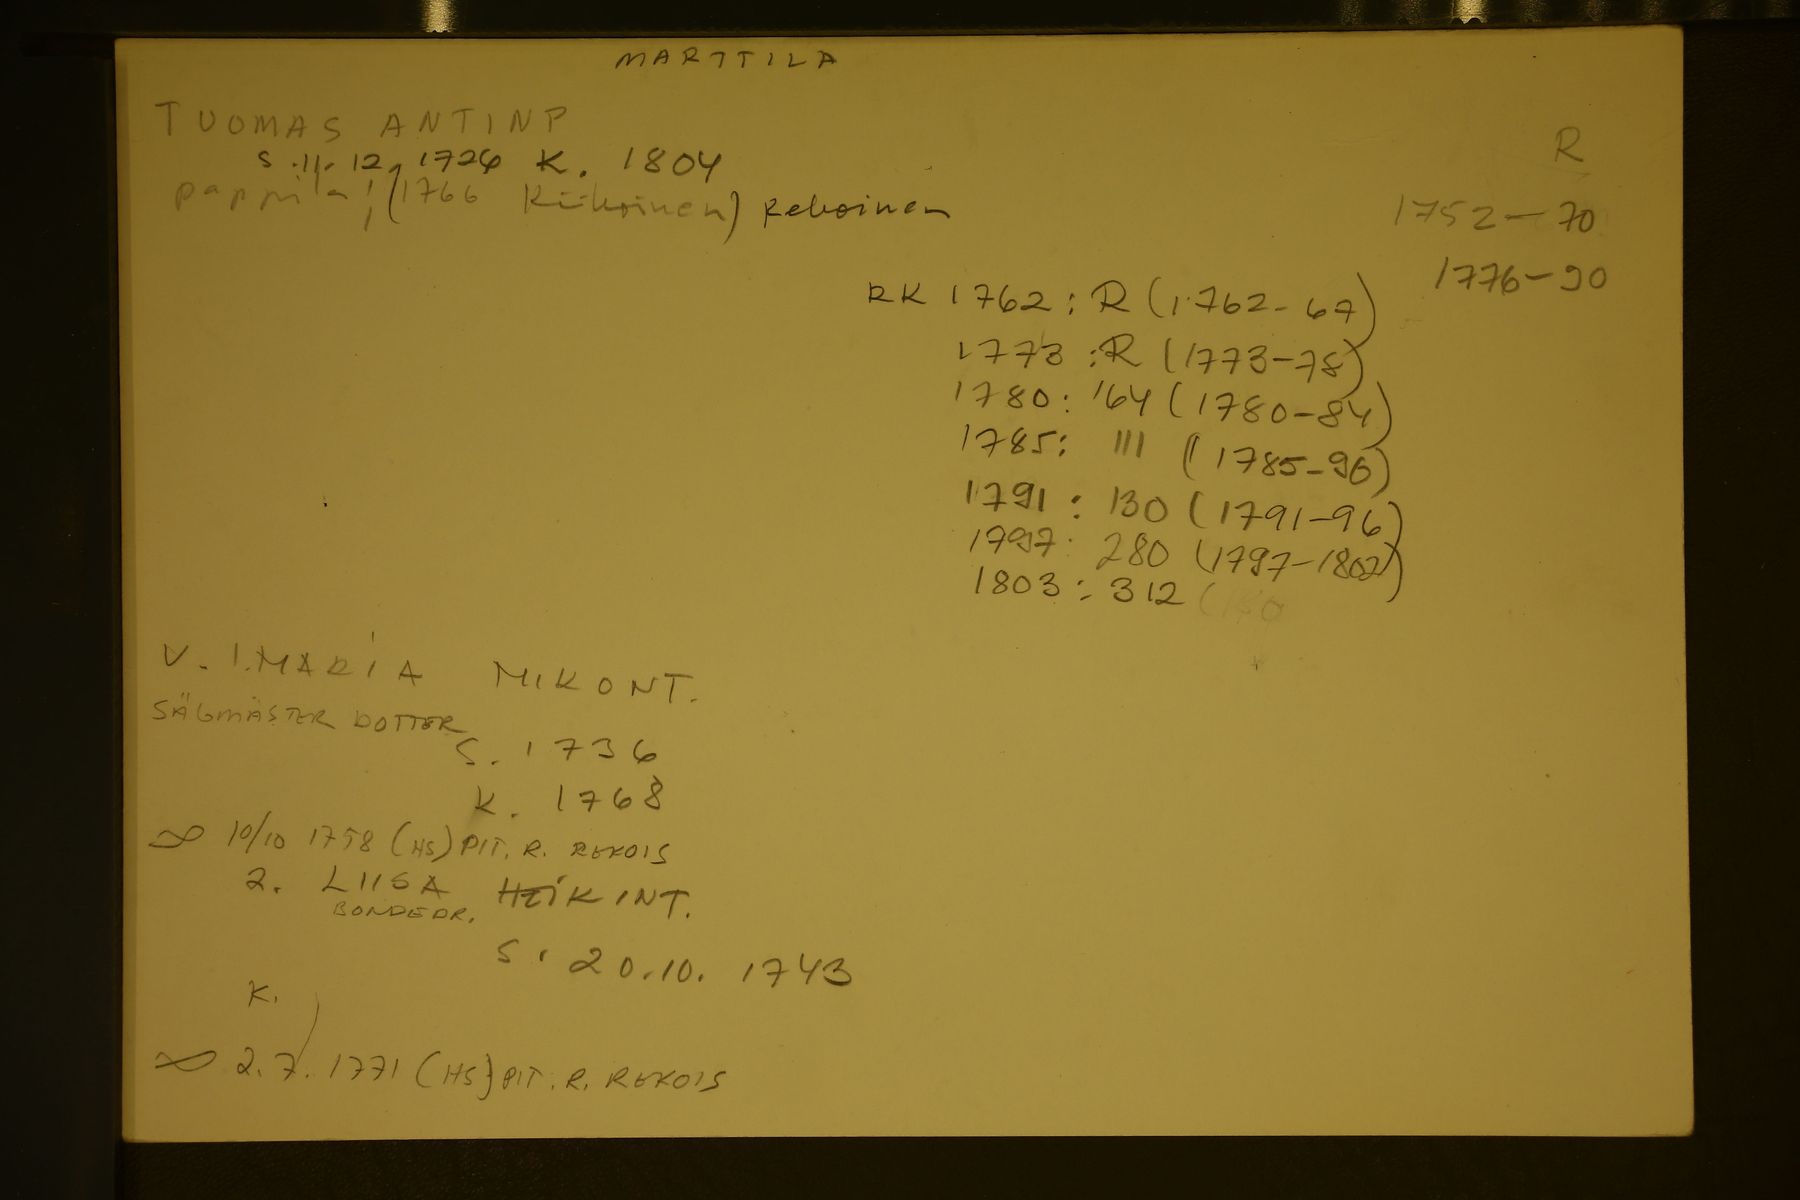 MARTTILA
TUOMAS ANTINP
S. 11. 12. 1726 K. 1804
pappila; (1766 Kiikoinen) Rekoinen
R
1752-70
1776-90
RK 1762: R (1762-67)
1773: R (1773-78)
1780: '64 (1780-84)
1785: 111 (1785-96)
1791: 130 (1791-96)
1797: 280 (1797-1802)
1803: 312
V. 1. MARIA MIKONT.
SÄGMÄSTER DOTTER
S. 1736
K. 1768
∞ 10/10 1758 (HS) PIT. R. REKOIS
2. LIISA HEIKINT.
BONDEDR.
S. 20.10. 1743
K.
∞ 2.7. 1771 (HS) PIT. R. REKOIS